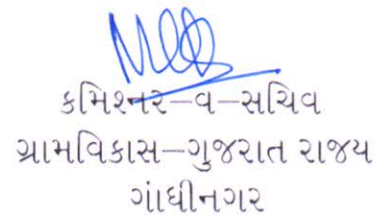 કમિશ્નર–વ–સચિવ
ગ્રામવિકાસ–ગુજરાત રાજય
ગાંધીનગર